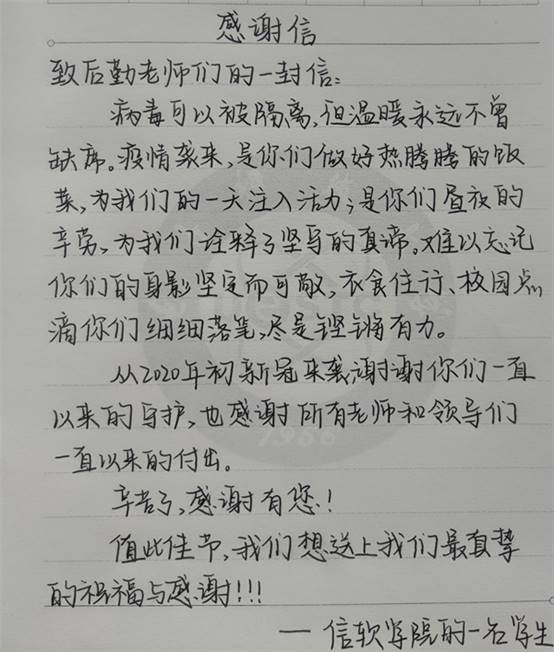 感谢信
致后勤老师们的一封信：
病毒可以被隔离，但温暖永远不曾
缺席。疫情袭来，是你们做好热腾腾的饭
菜，为我们的一天注入活力；是你们昼夜的
辛劳，为我们诠释了坚守的真谛。难以忘记
你们的身影坚定而可敬，衣食住行、校园点
滴你们细细落笔，尽是铿锵有力。
从2020年初新冠来袭，谢谢你们一直
以来的守护，也感谢所有老师和领导们
一直以来的付出。
辛苦了，感谢有您！
值此佳节，我们想送上我们最真挚
的祝福与感谢！！！
— 信软学院的一名学生